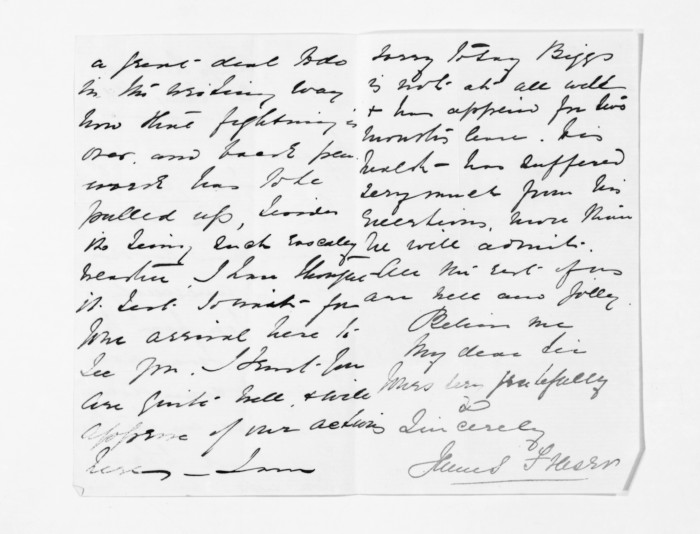 a great deal to do
in the writing way
now that fighting is
over, and back pen
work has to be
pulled up, besides
its being such rascally
weather, I have thought
it best to wait for
your arrival here to
see you. I trust you
are quite well, & will
approve of our actions
here — I am
sorry to say Biggs
is not at all well
& has applied for two
months leave. His
health has suffered
very much from his
exertions, more than
he will admit.
All the rest of us
are well and jolly.
Believe me
My dear Sir
Yours very gratefully
&
Sincerely
James Fraser